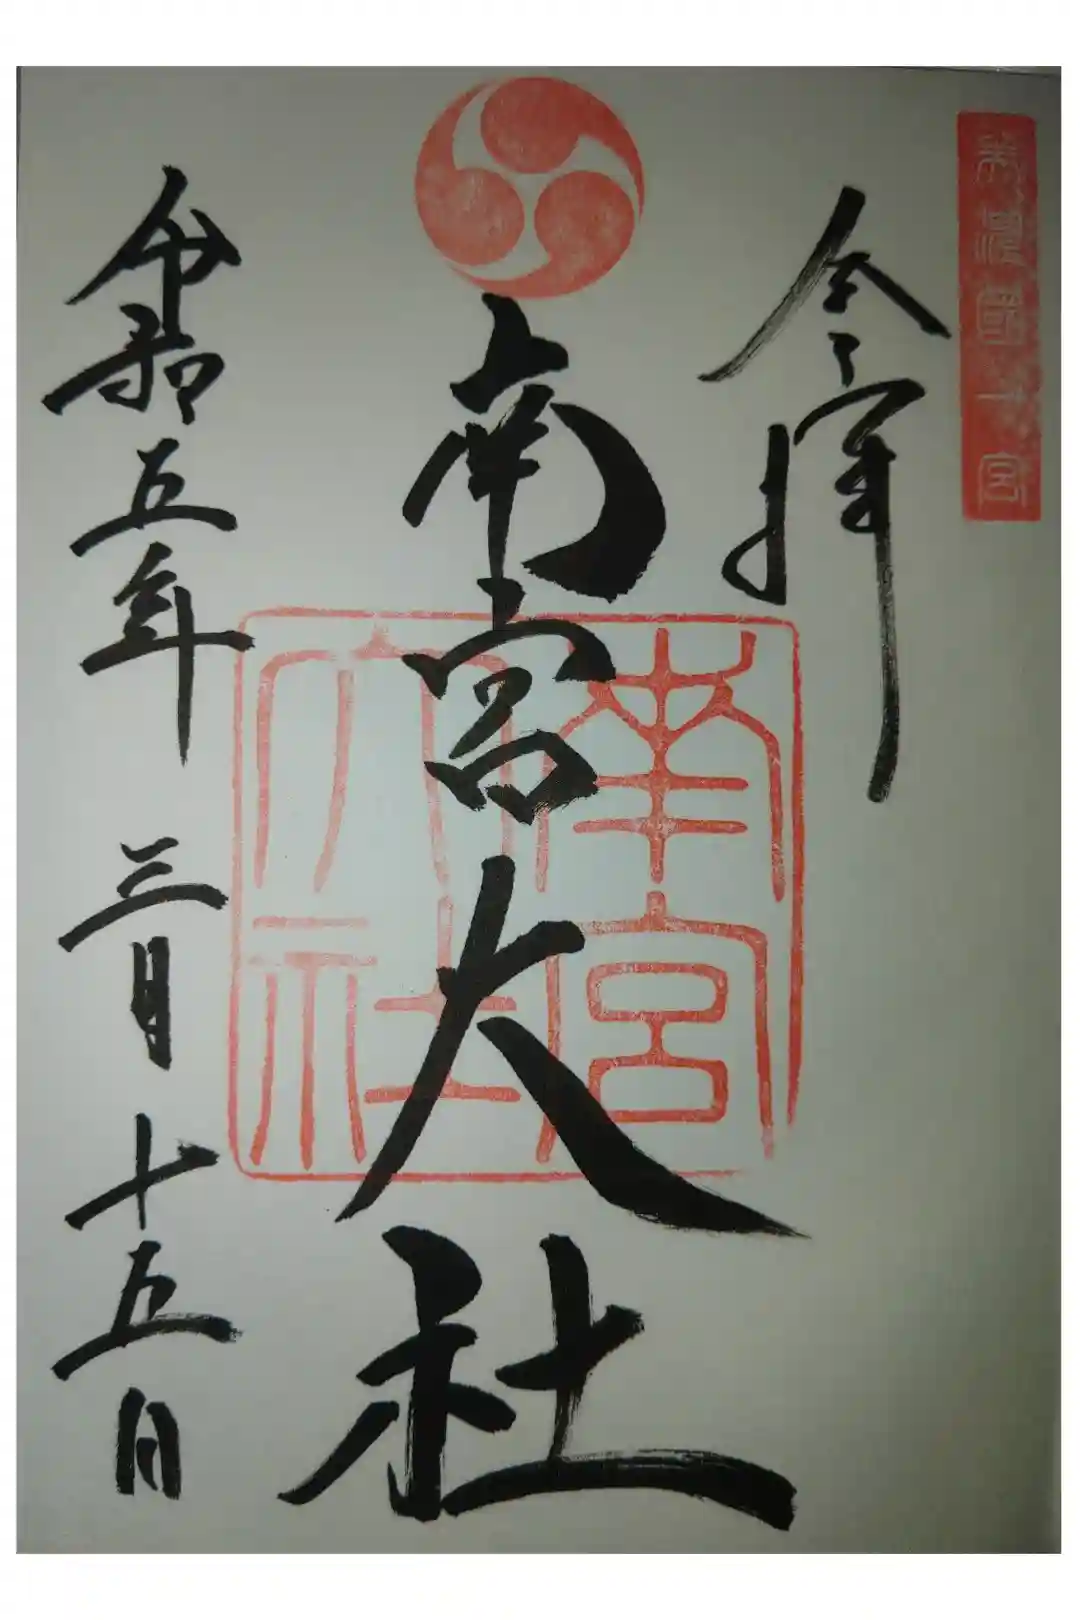 美濃國一宮
南宮大社
南宮大社
令和五年 三月 十五日